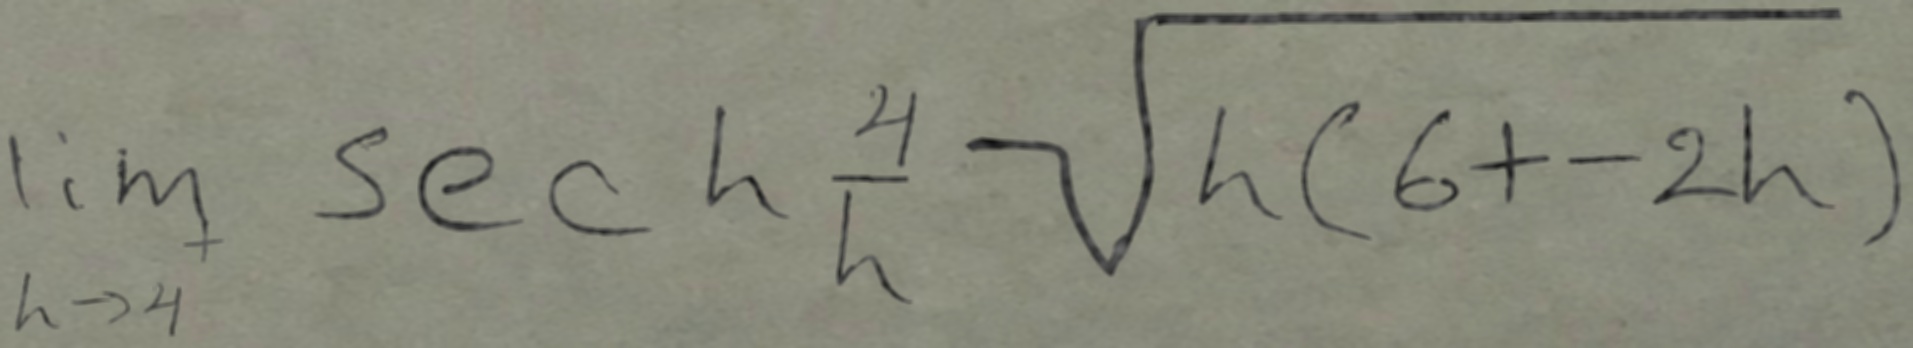 \lim_{h \to 4^+} \sec h \frac{4}{h} \sqrt{h(6+-2h)}